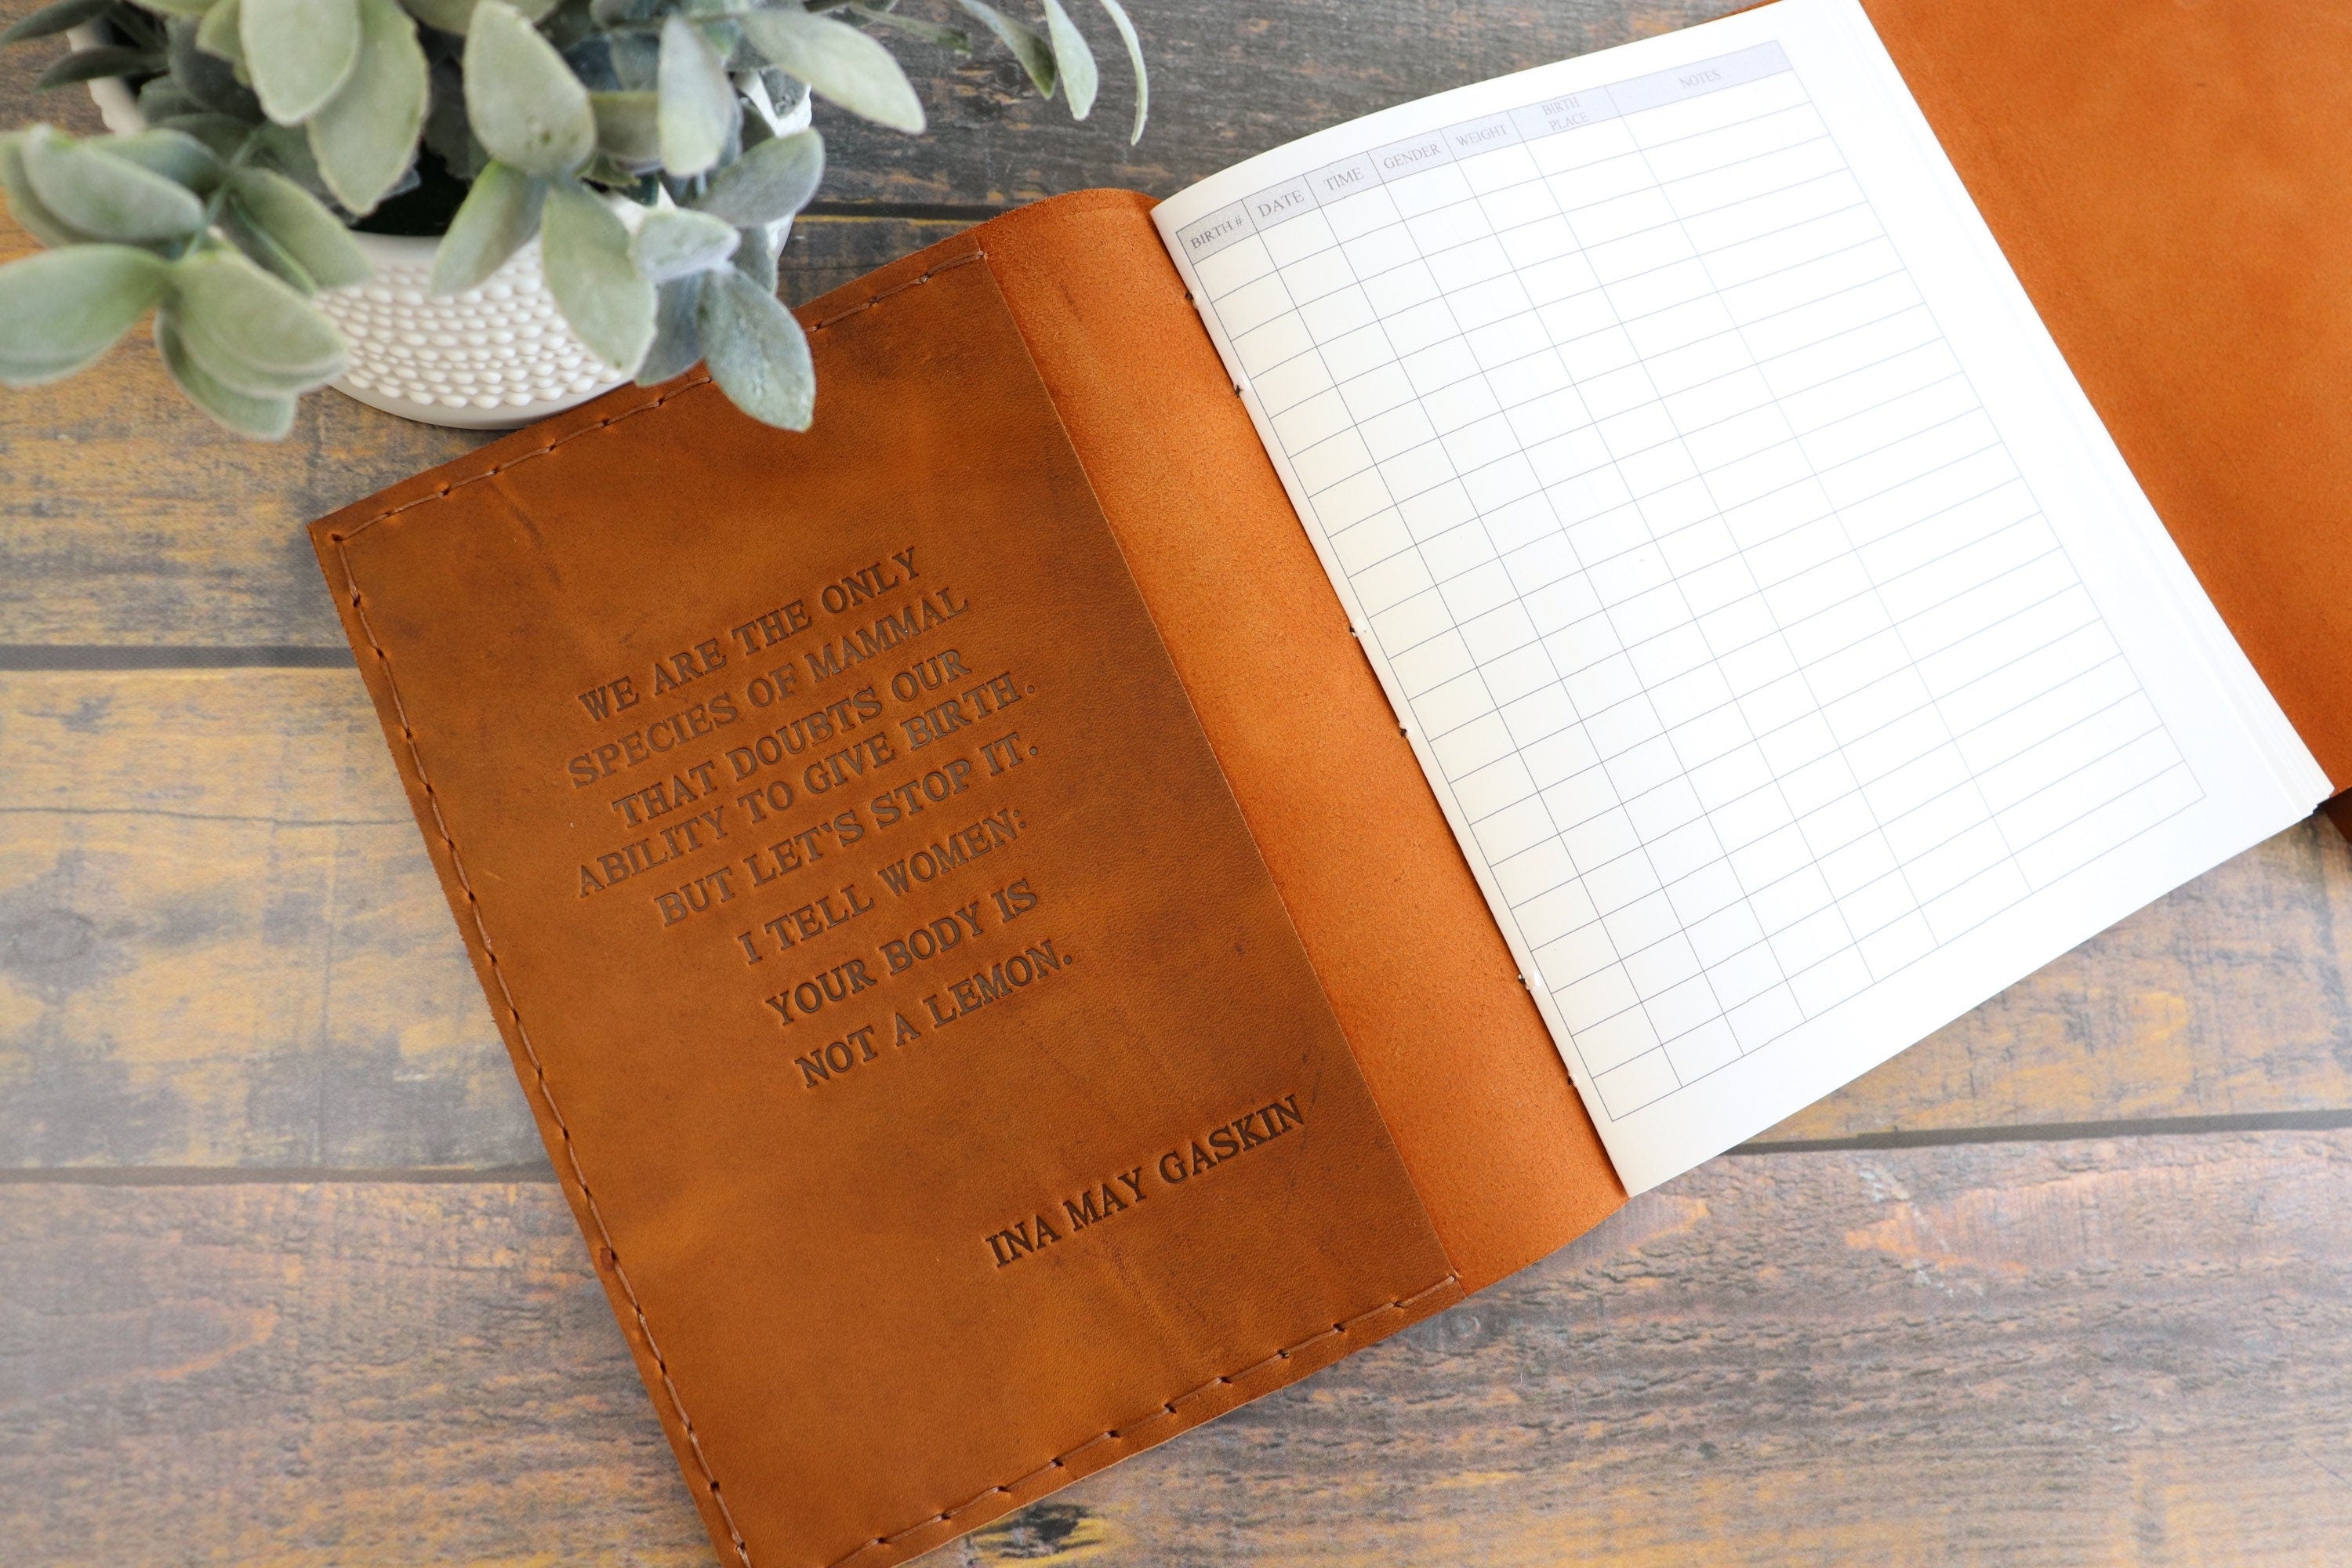 WE ARE THE ONLY
SPECIES OF MAMMAL
THAT DOUBTS OUR
ABILITY TO GIVE BIRTH.
BUT LET'S STOP IT.
I TELL WOMEN:
YOUR BODY IS
NOT A LEMON.
INA MAY GASKIN
BIRTH # DATE TIME GENDER WEIGHT BIRTH PLACE NOTES